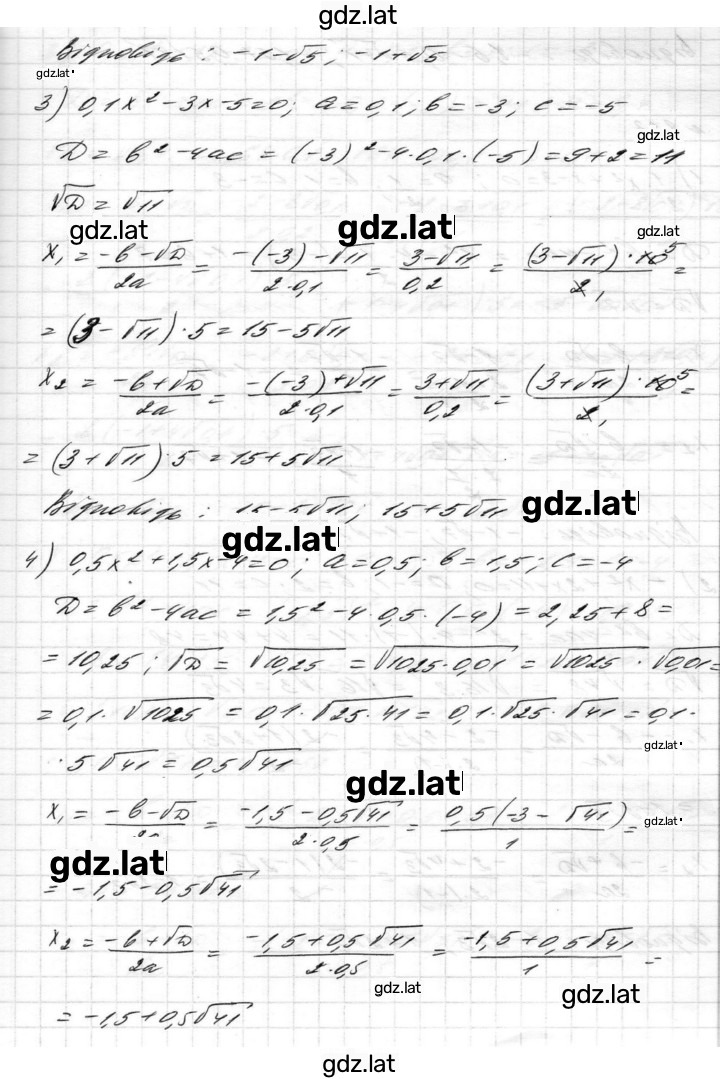 gdz.lat
Відповідь : -1-√5 ; -1+√5
gdz.lat
3) 0,1x² - 3x - 5 = 0; a = 0,1; b = -3; c = -5
gdz.lat
D = b² - 4ac = (-3)² - 4·0,1·(-5) = 9 + 2 = 11
√D = √11
gdz.lat gdz.lat gdz.lat
x₁ = (-b - √D)/(2a) = (-(-3) - √11)/(2·0,1) = (3 - √11)/(0,2) = ((3 - √11)·10 5)/(2 1) =
= (3 - √11)·5 = 15 - 5√11
x₂ = (-b + √D)/(2a) = (-(-3) + √11)/(2·0,1) = (3 + √11)/(0,2) = ((3 + √11)·10 5)/(2 1) =
= (3 + √11)·5 = 15 + 5√11
Відповідь : 15 - 5√11; 15 + 5√11 gdz.lat
gdz.lat
4) 0,5x² + 1,5x - 4 = 0; a = 0,5; b = 1,5; c = -4
D = b² - 4ac = 1,5² - 4·0,5·(-4) = 2,25 + 8 =
= 10,25; √D = √10,25 = √1025·0,01 = √1025 · √0,01 =
= 0,1·√1025 = 0,1·√25·41 = 0,1·√25·√41 = 0,1·
gdz.lat
·5√41 = 0,5√41
gdz.lat
x₁ = (-b - √D)/(2a) = (-1,5 - 0,5√41)/(2·0,5) = (0,5(-3 - √41))/1 =
gdz.lat
gdz.lat
= -1,5 - 0,5√41
x₂ = (-b + √D)/(2a) = (-1,5 + 0,5√41)/(2·0,5) = (-1,5 + 0,5√41)/1 =
gdz.lat gdz.lat
= -1,5 + 0,5√41
gdz.lat